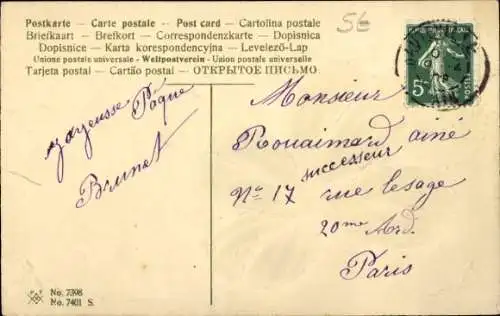 Postkarte — Carte postale — Post card — Cartolina postale
Briefkaart — Brefkort — Correspondenzkarte — Dopisnica
Dopisnice — Karta korespondencyjna — Levelező-Lap
Unione postale universale - Weltpostverein - Union postale universelle
Tarjeta postal — Cartão postal — ОТКРЫТОЕ ПИСЬМО
56
5c
POSTES
Joyeusse Pâque
Brunet
Monsieur
Rouaimard ainé
successeur
No 17 rue lesage
20me Ard.
Paris
No. 7398
No. 7401 S.